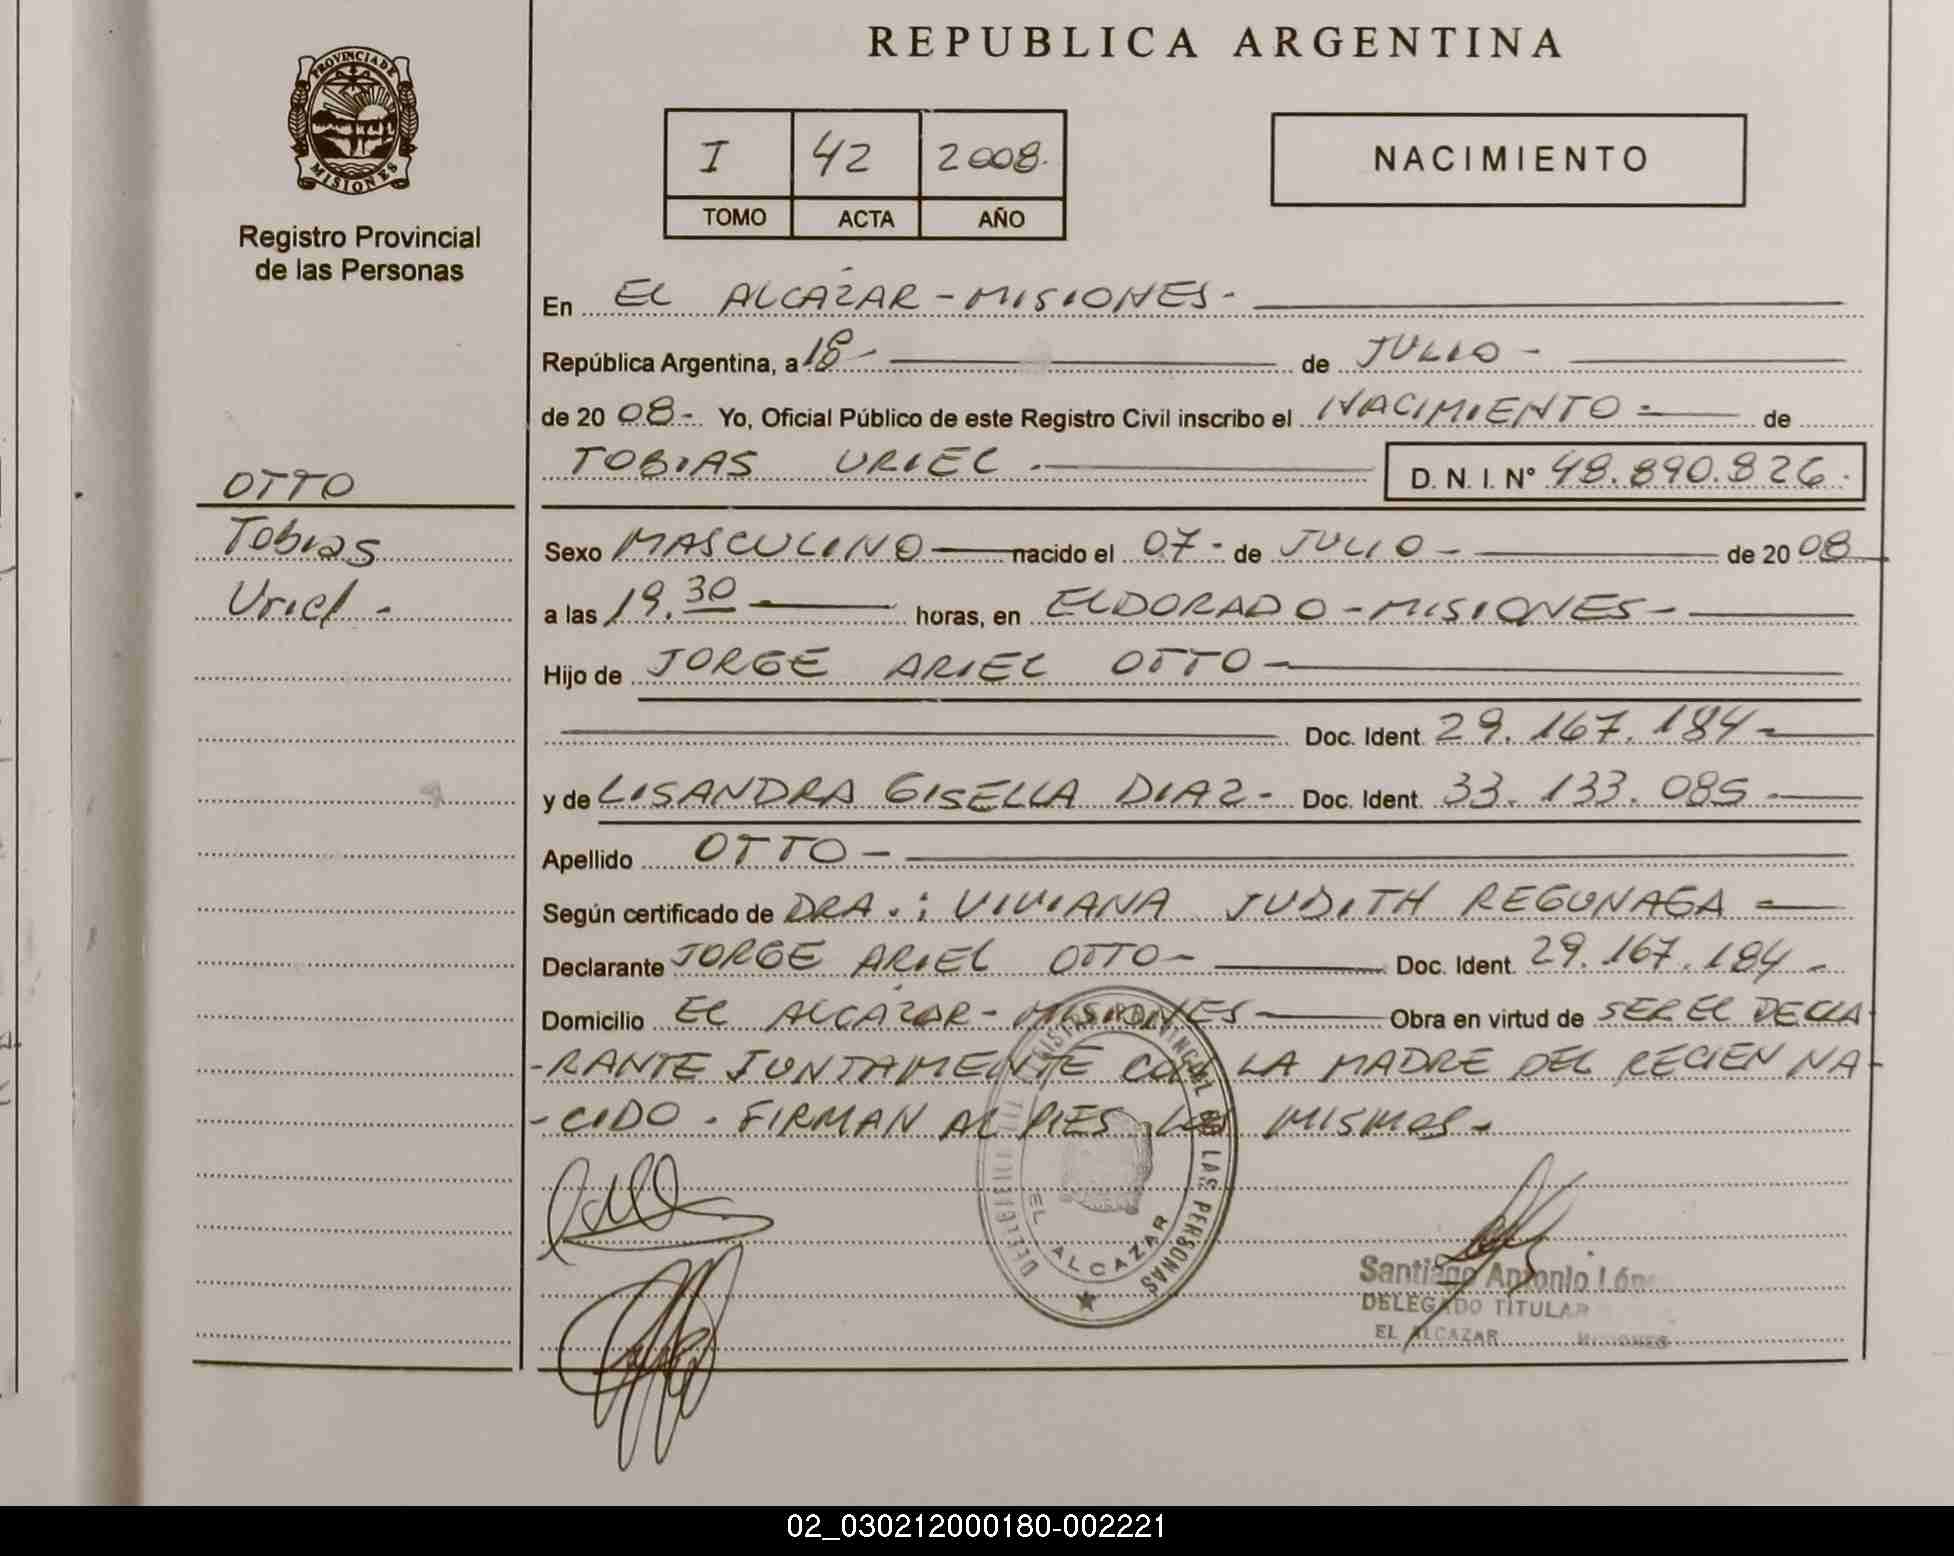 REPUBLICA ARGENTINA
PROVINCIA DE
MISIONES
Registro Provincial
de las Personas
I 42 2008.
TOMO ACTA AÑO
NACIMIENTO
En EL ALCÁZAR - MISIONES -
República Argentina, a 18 - de JULIO -
de 20 08 - Yo, Oficial Público de este Registro Civil inscribo el NACIMIENTO - de
TOBIAS URIEL . D. N. I. Nº 48.890.826.
OTTO
Tobias
Uriel -
Sexo MASCULINO nacido el 07 - de JULIO - de 20 08
a las 19.30 horas, en ELDORADO - MISIONES -
Hijo de JORGE ARIEL OTTO -
Doc. Ident. 29.167.184 -
y de LISANDRA GISELLA DIAZ - Doc. Ident. 33.133.085 -
Apellido OTTO -
Según certificado de DRA.: VIVIANA JUDITH REGUNAGA
Declarante JORGE ARIEL OTTO - Doc. Ident. 29.167.184 -
Domicilio EL ALCÁZAR - MISIONES - Obra en virtud de SER EL DECLA-
-RANTE JUNTAMENTE CON LA MADRE DEL RECIEN NA-
-CIDO . FIRMAN AL PIES LOS MISMOS -
REGISTRO PROVINCIAL DE LAS PERSONAS
EL ALCAZAR
Santiago Antonio
DELEGADO TITULAR
EL ALCAZAR MISIONES
02_030212000180-002221